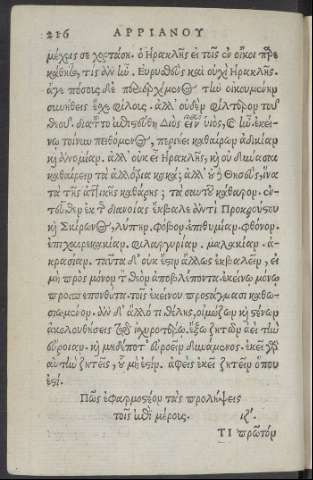 216 ΑΡΡΙΑΝΟΥ
μέχρι σε χορτάση. ὁ Ἡρακλῆς εἰ τοῖς ἐν οἴκῳ παρε
κάθητο, τίς ἂν ἦν. Εὐρυσθεὺς καὶ οὐχὶ Ἡρακλῆς.
ἄγε πόσους δὲ περιερχόμενος τὴν οἰκουμένην
συνήθεις ἔσχε φίλους. ἀλλ' οὐδὲν φίλτερον τοῦ
θεοῦ. διὰ τοῦτο ἐπιστεύθη Διὸς εἶναι υἱὸς, καὶ ἦν. ἐκεί-
νῳ τοίνυν πειθόμενος, περιῄει καθαίρων ἀδικίαν
καὶ ἀνομίαν. ἀλλ' οὐκ εἶ Ἡρακλῆς, καὶ οὐ δύνασαι
καθαίρειν τὰ ἀλλότρια κακά; ἀλλ' οὐδὲ Θησεὺς, ἵνα
τὰ τῆς ἀττικῆς καθάρῃς; τὰ σαυτοῦ κάθαρον. ἐν-
τεῦθεν ἐκ τῆς διανοίας ἔκβαλε ἀντὶ Προκρούστου
καὶ Σκίρωνος, λύπην. φόβον. ἐπιθυμίαν. φθόνον.
ἐπιχαιρεκακίαν. φιλαργυρίαν. μαλακίαν. ἀ-
κρασίαν. ταῦτα δ' οὐκ ἔστιν ἄλλως ἐκβαλεῖν, εἰ
μὴ πρὸς μόνον τὸν θεὸν ἀποβλέποντα. ἐκείνῳ μόνῳ
προσπεπονθότα. τοῖς ἐκείνου προστάγμασι καθω-
σιωμένον. ἂν δ' ἄλλό τι θέλῃς, οἰμώζων καὶ στένων
ἀκολουθήσεις τῷ ἰσχυροτέρῳ. ἔξω ζητῶν ἀεὶ τὴν
εὔροιαν. καὶ μηδέποτ' εὐροεῖν δυνάμενος. ἐκεῖ γὰρ
αὐτὴν ζητεῖς, οὗ μή ἐστιν. ἀφεὶς ἐκεῖ ζητεῖν ὅπου
ἐστί.
Πῶς ἐφαρμοστέον τὰς προλήψεις
τοῖς ἐπὶ μέρους. ιζ'.
ΤΙ πρῶτόν